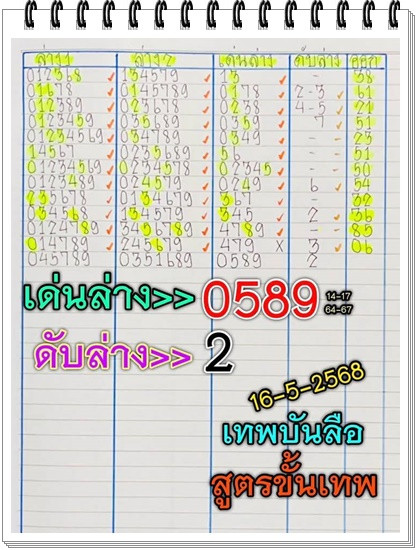 ล่าง1 ล่าง2 เด่นล่าง ดับล่าง ออก
012368 ✓ 134579 ✓ 13 ✓ - 38
01678 ✓ 0145789 ✓ 0178 ✓ 2-3 ✓ 61
012389 ✓ 023678 ✓ 0238 ✓ 4-5 ✓ 21
0123459 ✓ 035689 ✓ 0359 ✓ 7 ✓ 51
01234569 ✓ 034789 ✓ 0349 ✓ - 23
14567 ✓ 56 ✓ - - 51
01234569 ✓ 0234578 ✓ 02345 ✓ - - 50
0123489 ✓ 024579 ✓ 0249 ✓ 6 ✓ 54
235678 ✓ 0134679 ✓ 367 ✓ - - 32
034568 ✓ 134579 ✓ 345 ✓ 2 ✓ 36
0124789 ✓ 3456789 ✓ 4789 ✓ - - 85
014789 ✓ 245679 ✓ 479 X 3 ✓ 06
045789 0351689 0589 2
เด่นล่าง>> 0589 14-17
64-67
ดับล่าง>> 2
16-5-2568
เทพบันลือ
สูตรขั้นเทพ